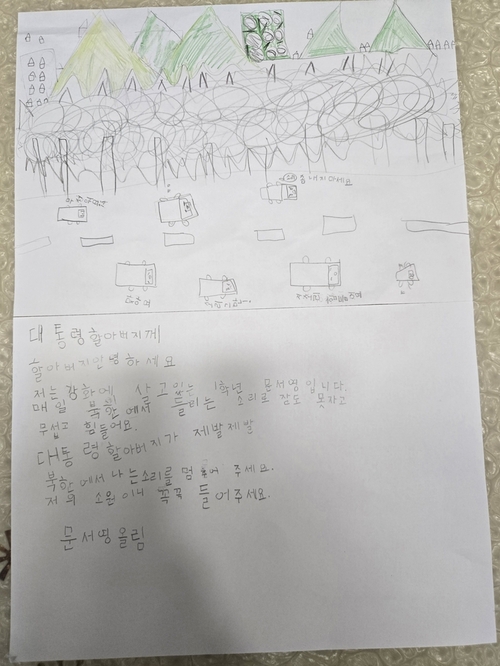 힘내지마세요
대통령할아버지께
할아버지안녕하세요
저는 강화에 살고있는 1학년 문서영입니다.
매일 북한에서 들리는 소리로 잠도 못자고
무섭고 힘들어요.
대통령할아버지가 제발제발
북한에서 나는소리를 멈춰 주세요.
저희 소원이니 꼭꼭 들어주세요.
문서영올림